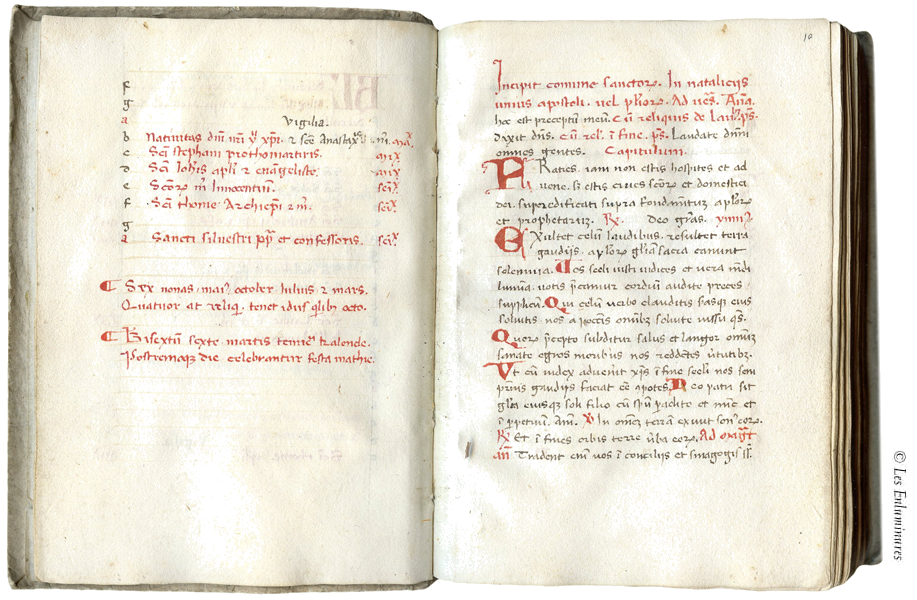 f
g
a Vigilia.
b Nativitas dñi nri yħ xp̃i. ⁊ scẽ Anastaxie m. ma.
c Scĩ stephani prothomartiris. mıx
d Scĩ Iohis apłi ⁊ evangeliste. mıx
e Scõꝝ m Innocentium. sełx
f Scĩ thome Archiep̃i ⁊ m. sełx
g
a Sancti silvestri pp̃ et confessoris. sełx
¶ Sex nonas. maiꝰ. october. Iulius. ⁊ mars.
Quatuor at reliq̃. tenet idus q̃libz octo.
¶ Bisextũ sexte martis tenue
Postremaqꝫ die celebrantur festa mathie.
10
Incipit comune sanctoꝝ. In nataliciis
unius apostoli. vel pluioꝝ. Ad ves̃. Añã.
hoc est preceptũ meũ. Cũ reliquis de laud. ps̃.
dixit dñs. Cũ rel. ĩ fine. ps̃. Laudate dñm
omnes gentes. Capitulum.
FRatres. iam non estis hospites et ad
vene. sꝫ estis cives scõꝝ et domestici
dei. superedificati supra fundamẽtuꝫ aplõꝝ
et prophetaruꝫ. ℟. Deo grãs. ymnꝰ.
EXultet celũ laudibus. resultet terra
gaudiis. aplõꝝ glĩam sacra canunt
solemnia. Vos secli iusti iudices et vera mũdi
lumina. votis p̃camur cordiũ audite preces
supplicũ. Qui celũ verbo clauditis serasqꝫ eius
solvitis. nos a pccĩs omnibꝫ solvite iussu q̃s.
Quoꝝ p̃cepto subditur salus et langor omniũ
sanate egros moribus nos reddẽtes ṽtutibꝫ.
Ut cũ iudex advenit xp̃s ĩ fine secli nos sem
piterni gaudiis faciat eẽ cõpotes. Deo patri sit
glĩa eiusqꝫ soli filio cũ sp̃u paclito et nũc et
ĩ p̃petuũ. Am̃. ℣ In omneꝫ terrã exivit sonꝰ eoꝝ.
℟ Et ĩ fines orbis terre v̓ba eoꝝ. Ad magͭ
añ Tradent eñi vos ĩ conciliis et sinagogis ss̃.
© Les Enluminures